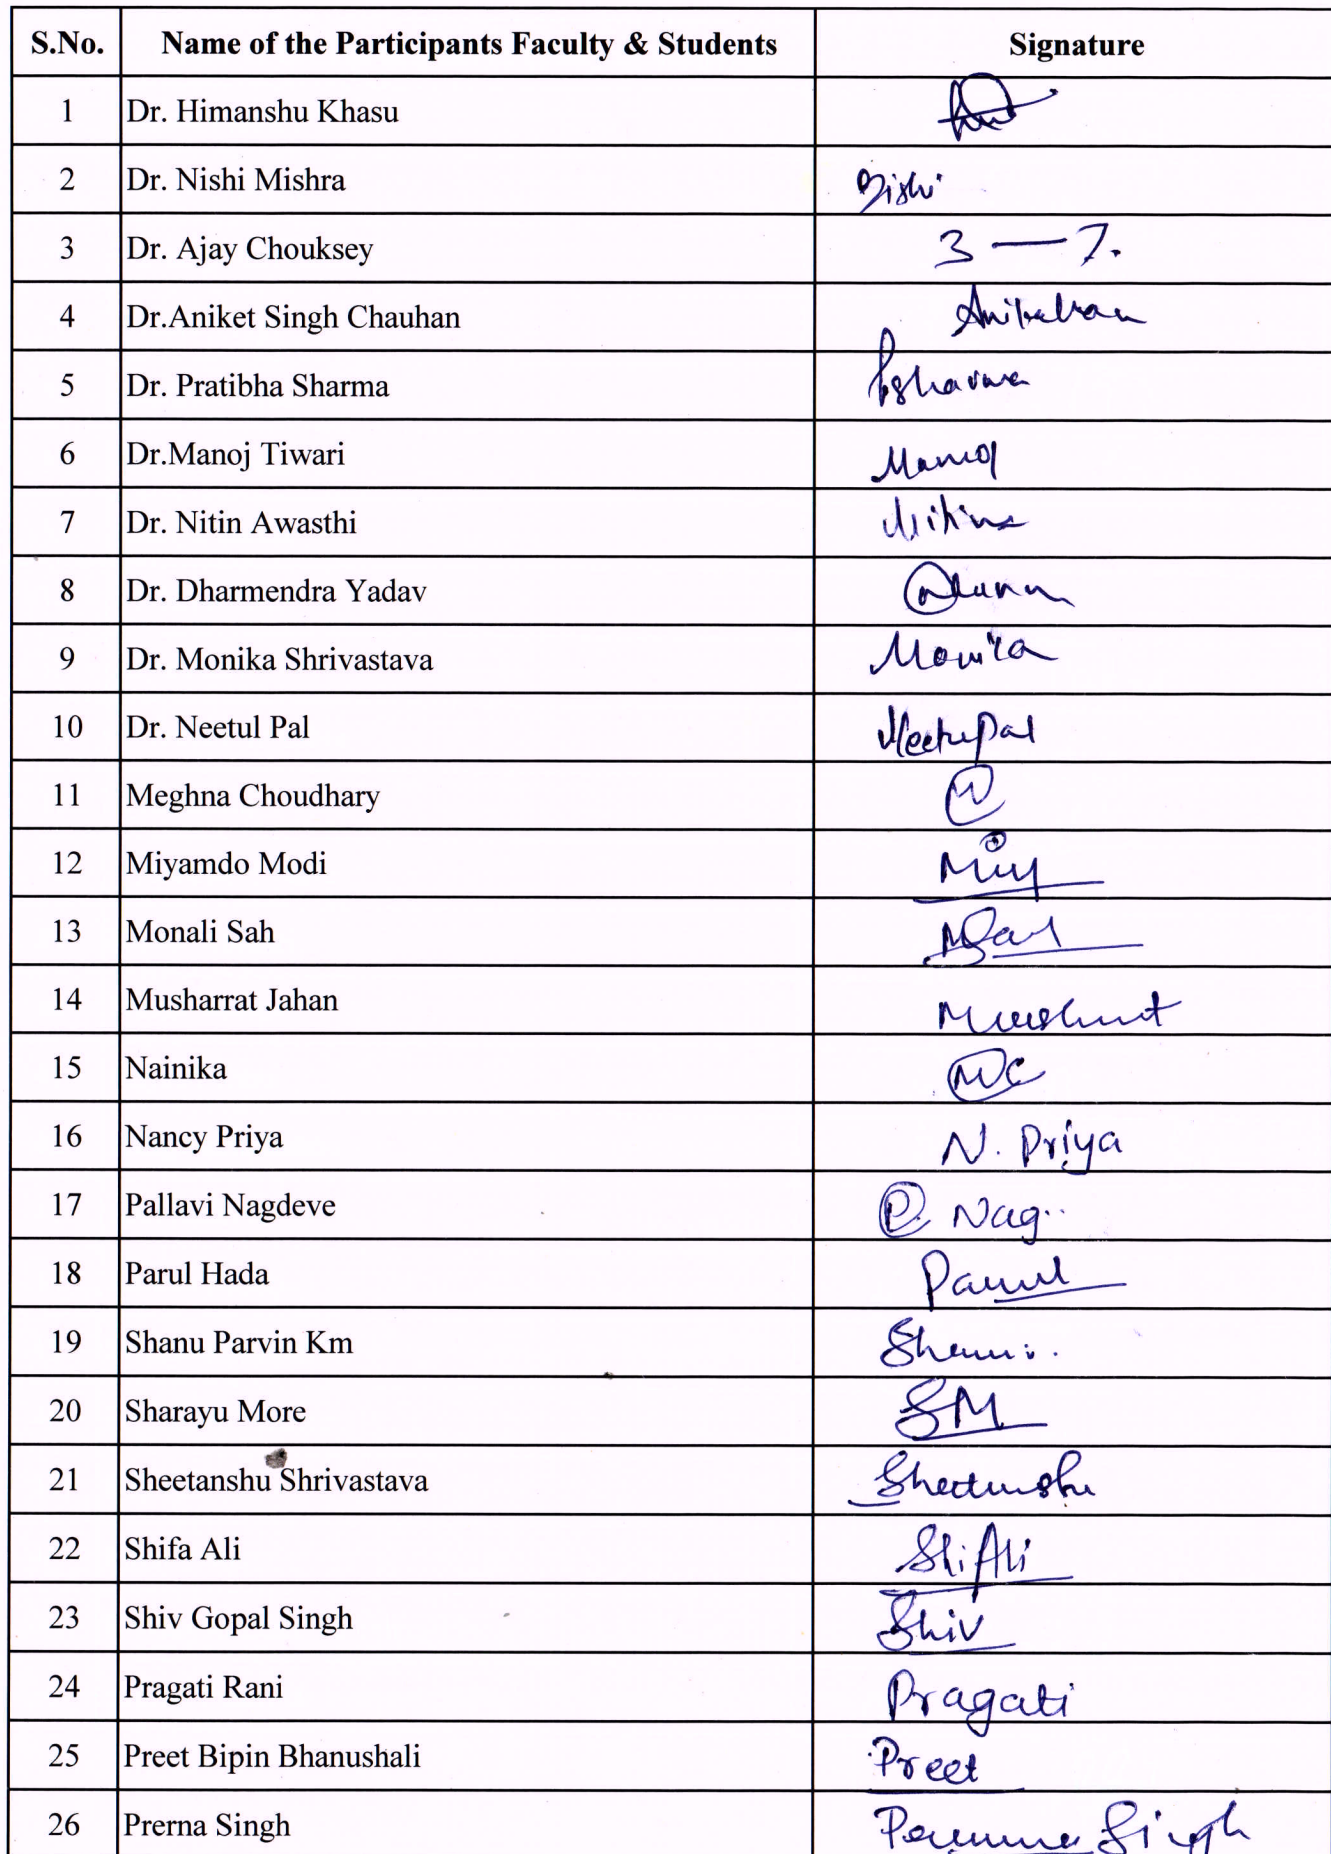 S.No. Name of the Participants Faculty & Students Signature
1 Dr. Himanshu Khasu
2 Dr. Nishi Mishra Nishi
3 Dr. Ajay Chouksey
4 Dr.Aniket Singh Chauhan
5 Dr. Pratibha Sharma Psharma
6 Dr.Manoj Tiwari Manoj
7 Dr. Nitin Awasthi
8 Dr. Dharmendra Yadav
9 Dr. Monika Shrivastava Monika
10 Dr. Neetul Pal
11 Meghna Choudhary
12 Miyamdo Modi
13 Monali Sah
14 Musharrat Jahan
15 Nainika
16 Nancy Priya N. Priya
17 Pallavi Nagdeve P. Nag..
18 Parul Hada Parul
19 Shanu Parvin Km
20 Sharayu More SM
21 Sheetanshu Shrivastava
22 Shifa Ali
23 Shiv Gopal Singh Shiv
24 Pragati Rani Pragati
25 Preet Bipin Bhanushali Preet
26 Prerna Singh